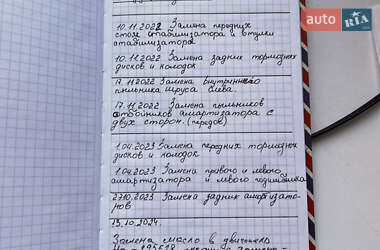 auto RIA.com
10.11.2022 Замена передних
стоек стабилизатора и втулки
стабилизатора
10.11.2022 Замена задних тормозных
дисков и колодок
17.11.2022 Замена внутреннего
пыльника шруса слева
17.11.2022 Замена пыльников
отбойников амортизатора с
двух сторон. (передов)
1.04.2023 Замена передних тормозных
дисков и колодок
1.04.2023 Замена правого и левого
амортизатора и левого подшипника
27.10.2023 Замена задних амортизато-
ров
13.10.2024
Замена масло в двигатель